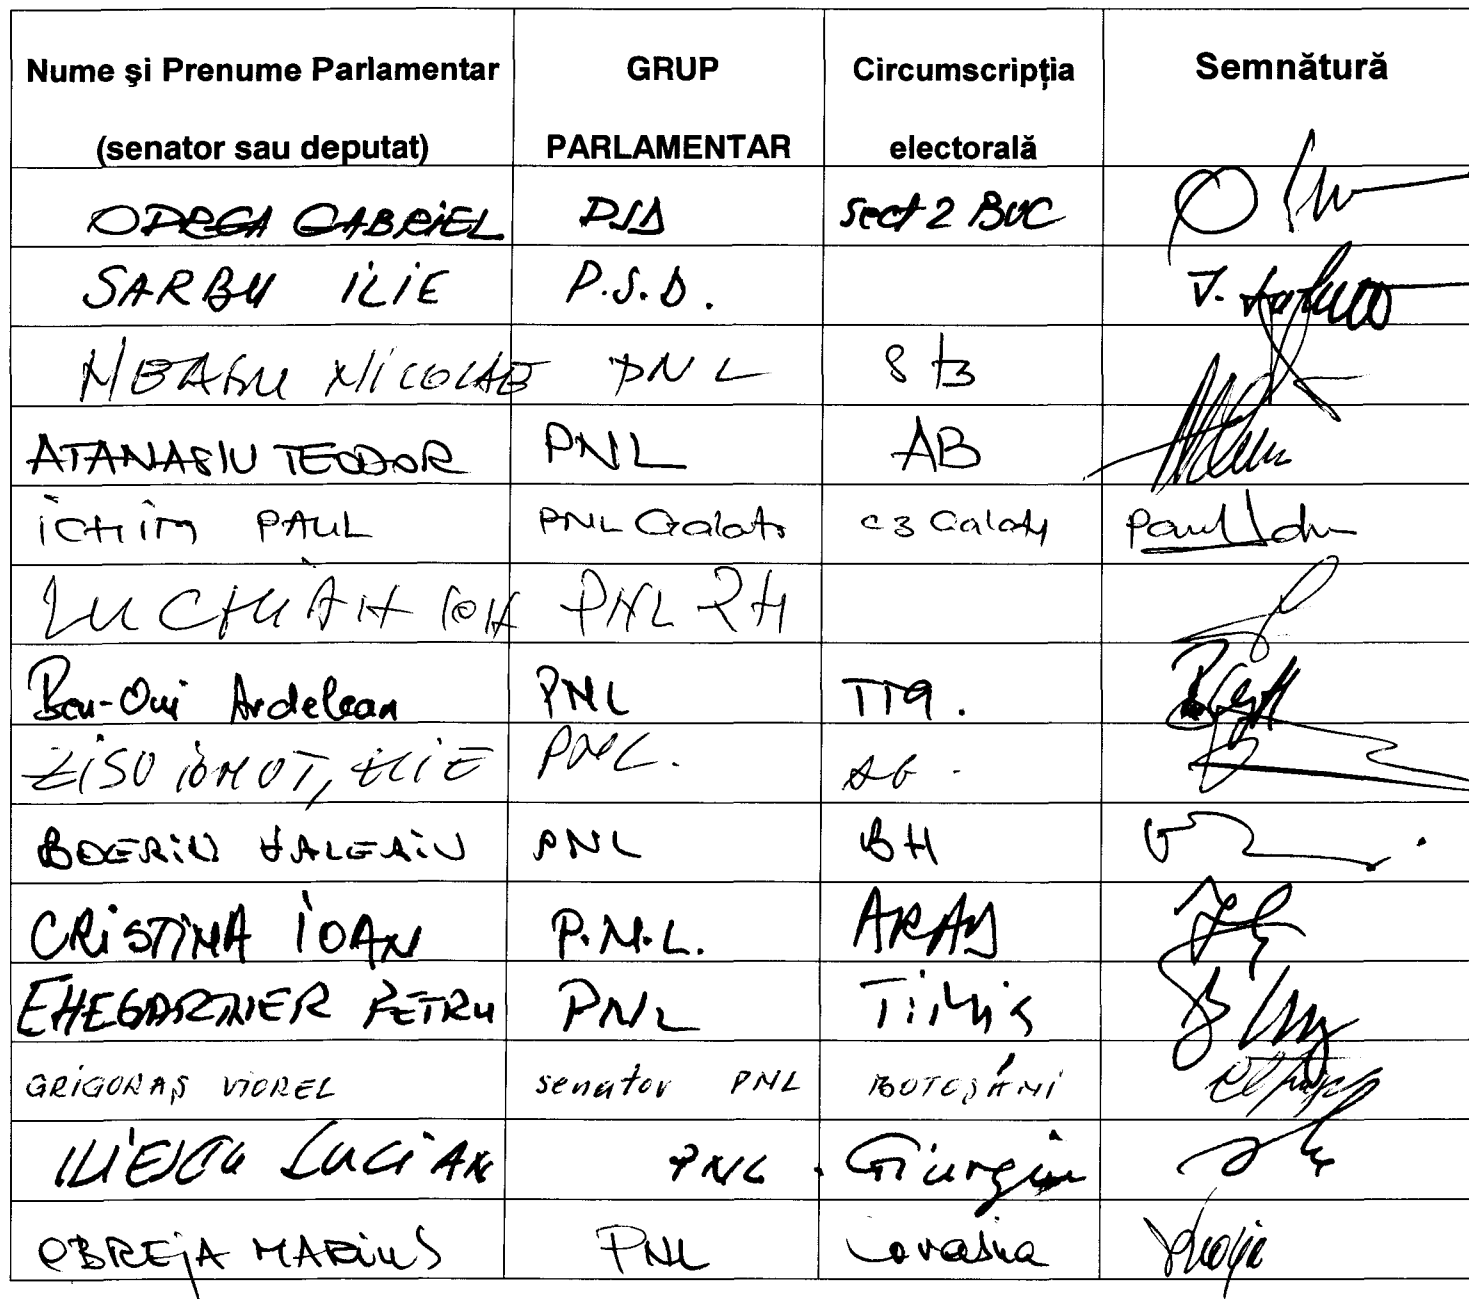 Nume și Prenume Parlamentar (senator sau deputat) GRUP PARLAMENTAR Circumscripția electorală Semnătură
OPREA GABRIEL PSD Sect 2 BUC
SARBU ILIE P.S.D.
NEAGU NICOLAE PNL
ATANASIU TEODOR PNL AB
ICHIM PAUL PNL Galati c3 Galati
LUCHIAN ION PNL PH
Ben-Oni Ardelean PNL
PNL.
BOERIU VALERIU PNL BH
CRISTINA IOAN P.N.L. ARAD
EHEGARTNER PETRU PNL Timiș
GRIGORAȘ VIOREL senator PNL BOTOȘANI
ILIESCU LUCIAN PNL. Giurgiu
OBREJA MARIUS PNL Covasna